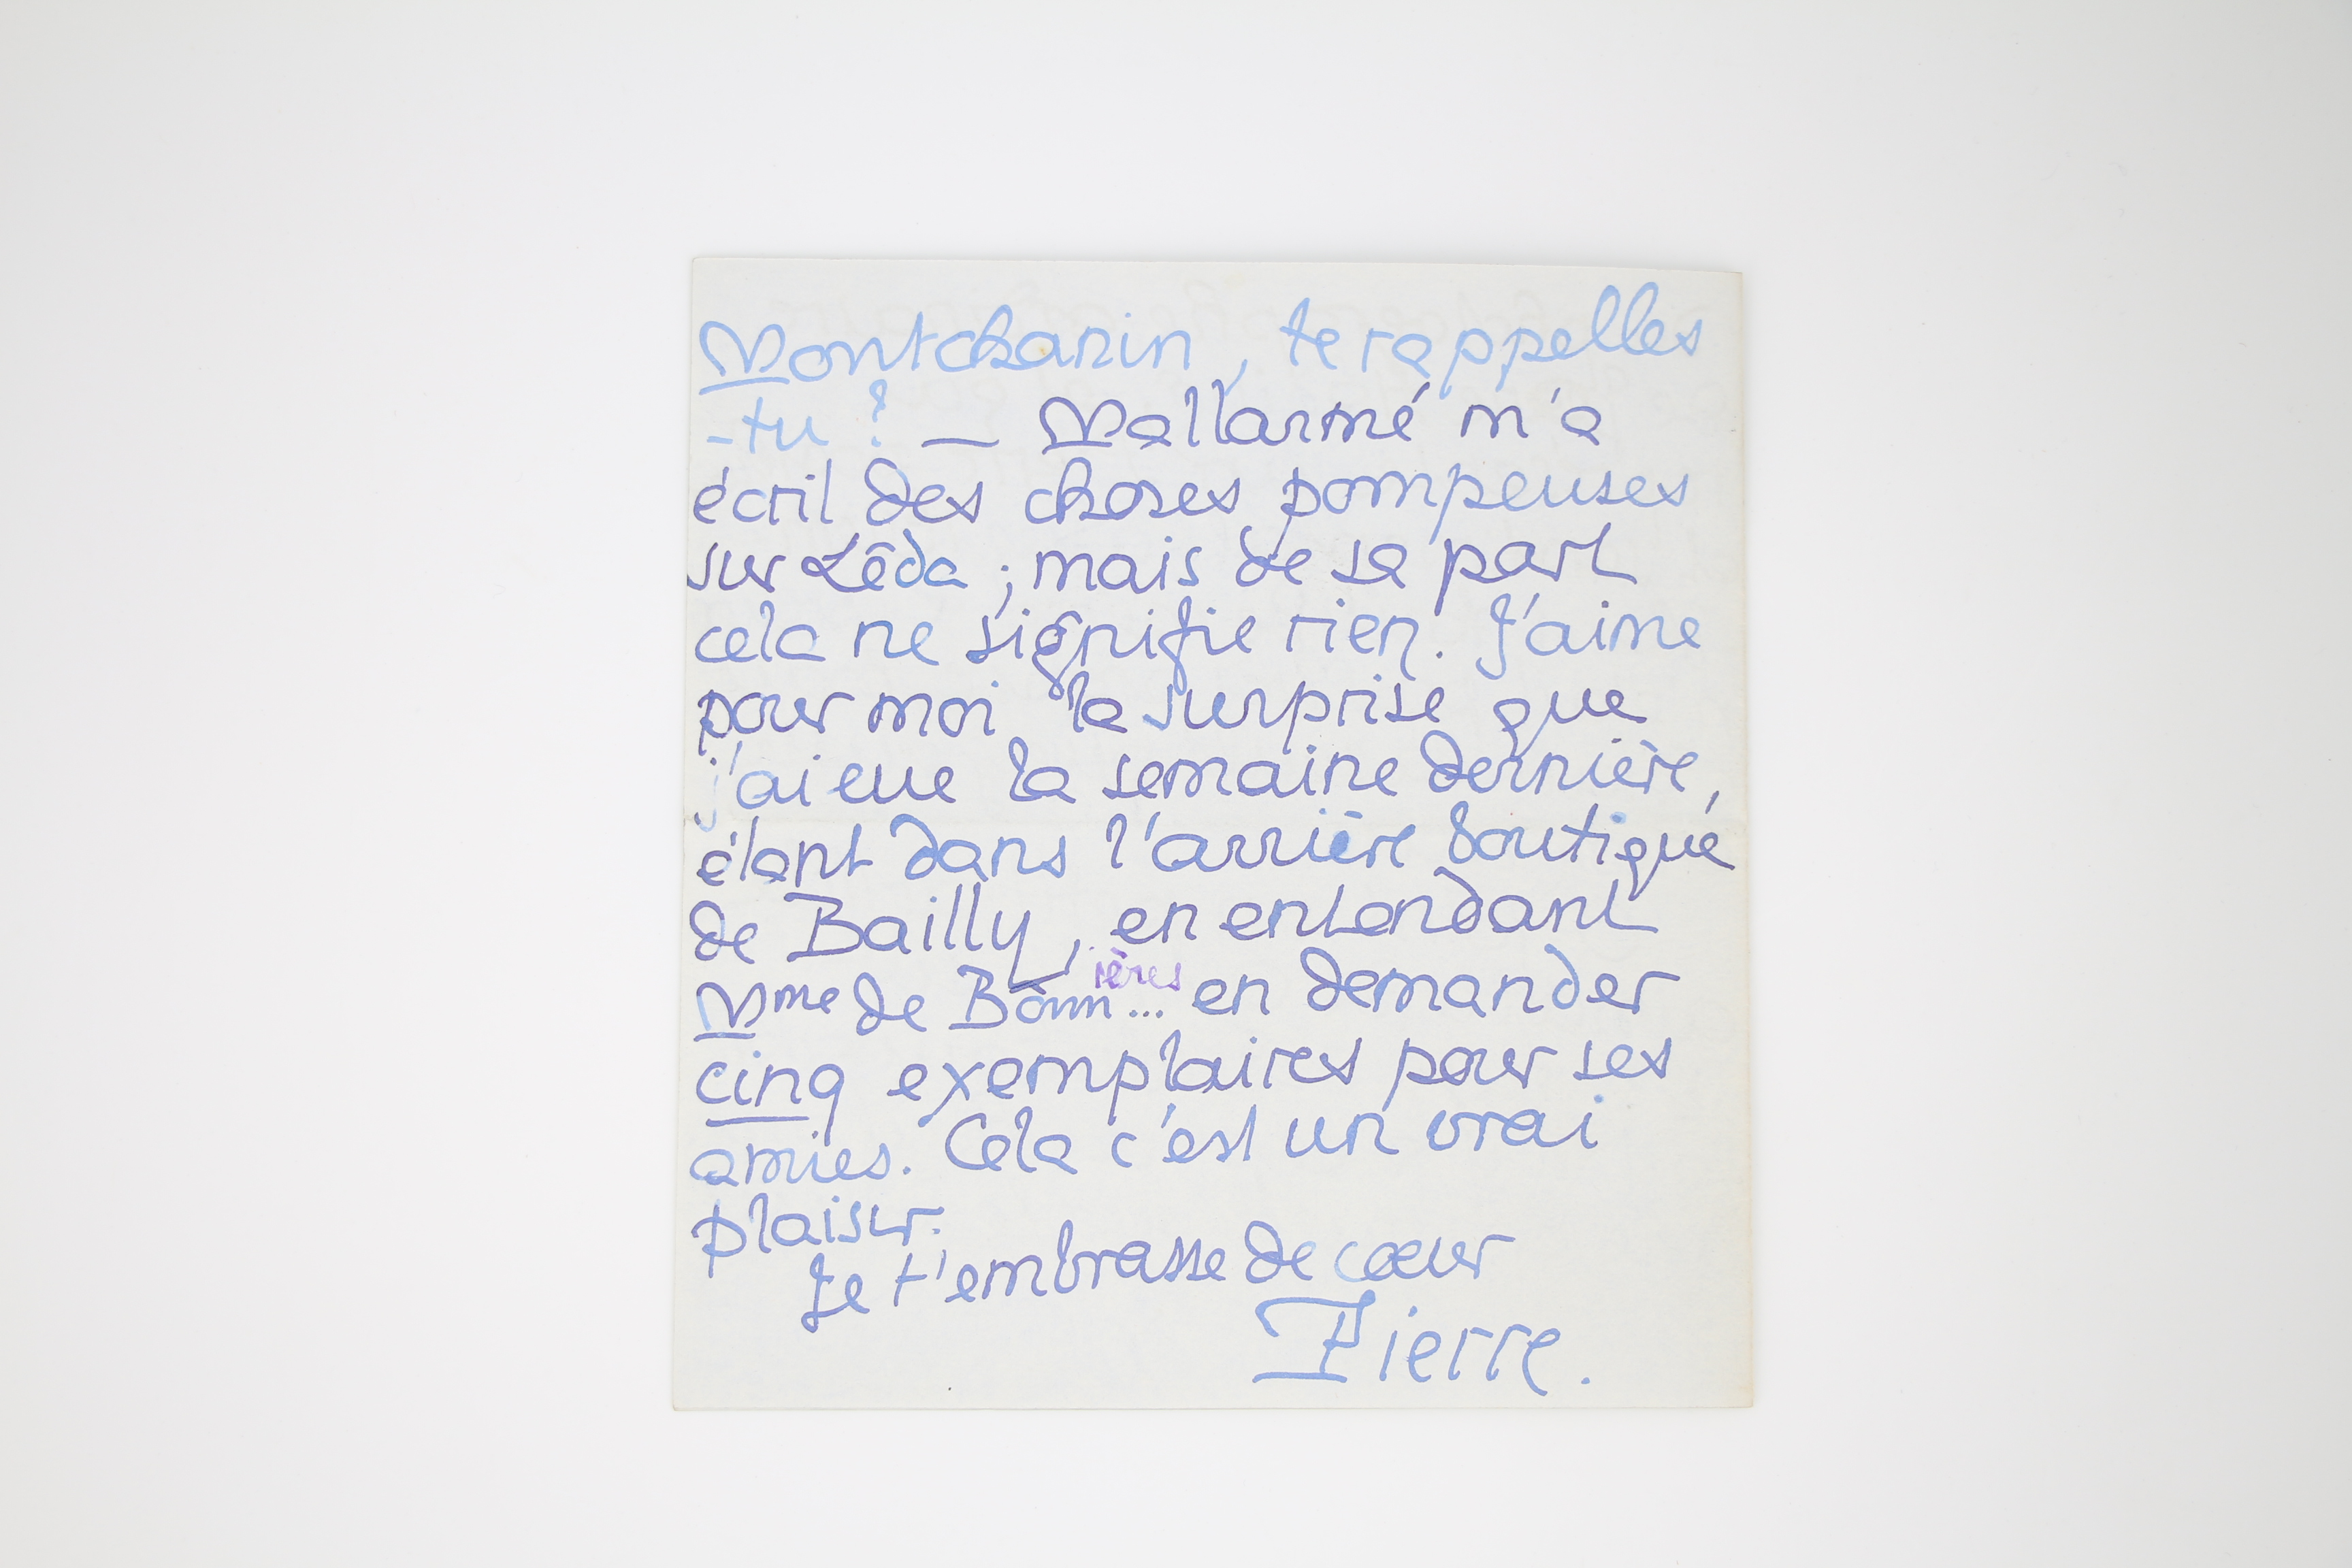 Montchanin, te rappelles
-tu ? — Mallarmé m'a
écrit des choses pompeuses
sur Lêda ; mais de sa part
cela ne signifie rien. J'aime
pour moi la surprise que
j'ai eue la semaine dernière,
étant dans l'arrière boutique
de Bailly, en entendant
Mme de Bonn...ières en demander
cinq exemplaires pour ses
amies. Cela c'est un vrai
plaisir.
Je t'embrasse de cœur
Pierre.